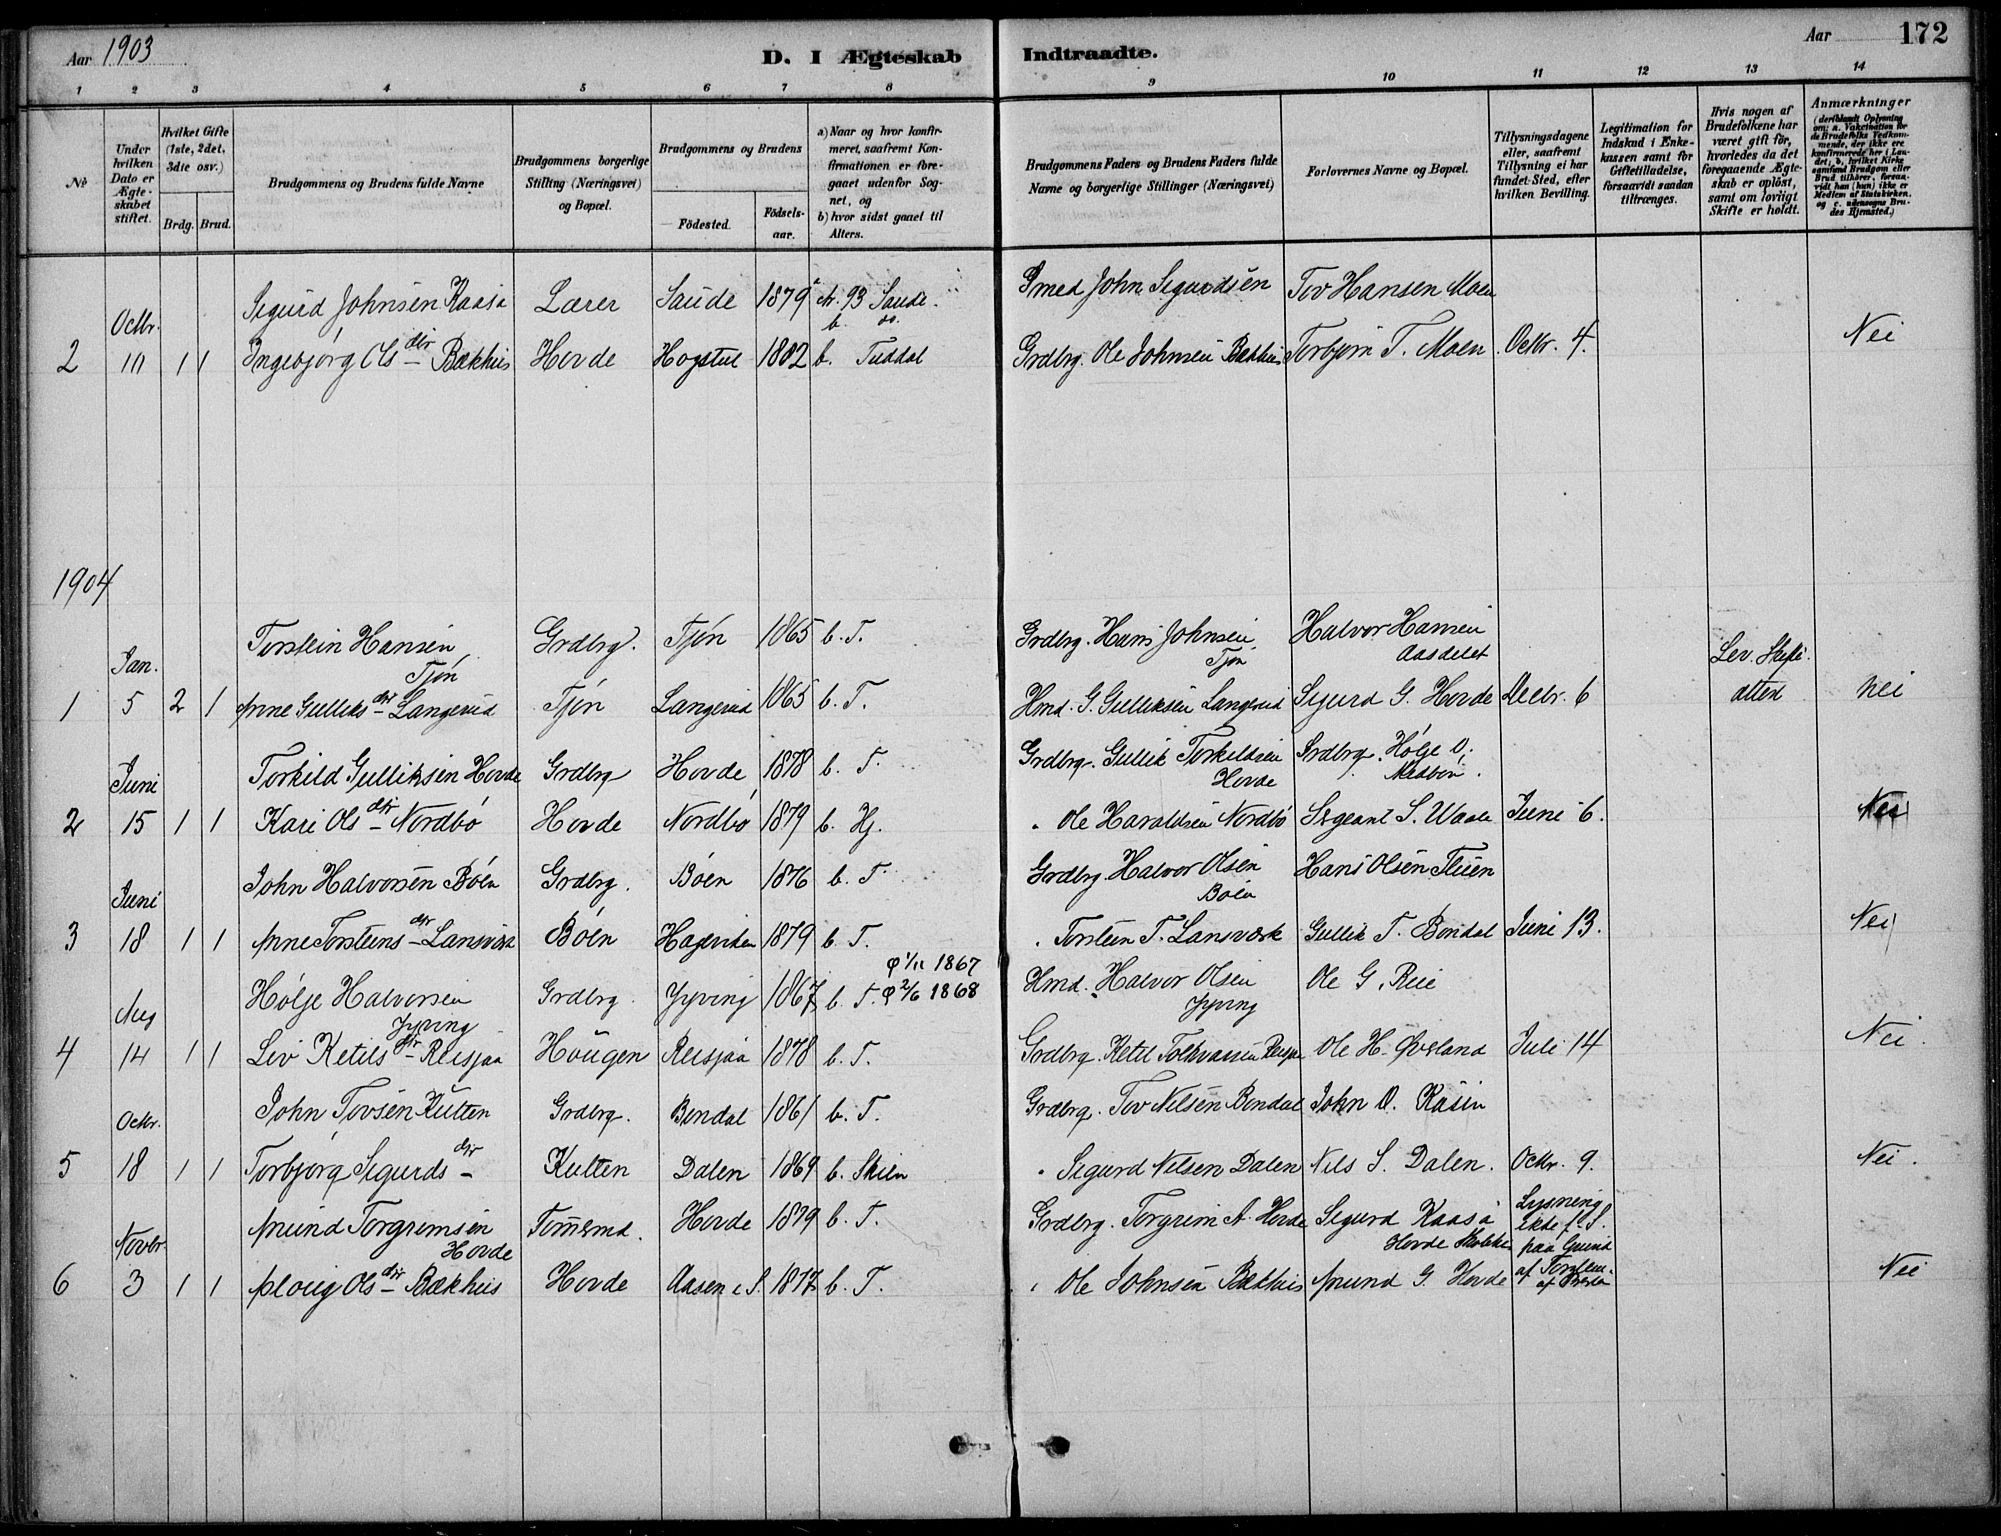 Aar 1903
D. I Ægteskab Indtraadte.
Aar 172
1 2 3 4 5 6 7 8 9 10 11 12 13 14
No
Under hvilken Dato er Ægteskabet stiftet.
Hvilket Gifte (1ste, 2det, 3die osv.)
Brdg. Brud.
Brudgommens og Brudens fulde Navne
Brudgommens borgerlige Stilling (Næringsvei) og Bopæl.
Brudgommens og Brudens
Fødested.
Fødselsaar.
a) Naar og hvor konfirmeret, saafremt Konfirmationen er foregaaet udenfor Sognet, og
b) hvor sidst gaaet til Alters.
Brudgommens Faders og Brudens Faders fulde Navne og borgerlige Stillinger (Næringsvei)
Forlovernes Navne og Bopæl.
Tillysningsdagene eller, saafremt Tillysning ei har fundet Sted, efter hvilken Bevilling.
Legitimation for Indskud i Enkekassen samt for Giftetilladelse, forsaavidt saadan tiltrænges.
Hvis nogen af Brudefolkene har været gift før, hvorledes da det foregaaende Ægteskab er opløst, samt om lovligt Skifte er holdt.
Anmærkninger (deriblandt Oplysning om: a. Vakcination for de Brudefolks Vedkommende, der ikke ere konfirmerede her i Landet; b. hvilket Kirkesamfund Brudgom eller Brud tilhører, forsaavidt han (hun) ikke er Medlem af Statskirken, og c. udensogns Brudes Hjemsted.)
Sigurd Johnsen Kaasa Lærer Saude 1879 a. 93 Saude. Smed John Sigurdsen Tov Hansen Moen
b. do.
Octbr.
2 10 1 1 Ingebjørg Olsdtr Bækhus Hovde Hogstul 1882 b. Tuddal Grdbrg. Ole Johnsen Bækhus Torbjørn T. Moen Octbr. 4. Nei
1904
Torstein Hansen Tjøn Grdbrg. Tjøn 1865 b. T. Grdbrg. Hans Johnsen Tjøn Halvor Hansen Aasdelet
Jan. Lev. Skifte
1 5 2 1 Anne Gulliksdtr Langerud Tjøn Langerud 1865 b. T. Hmd. G. Gulliksen Langerud Sigurd G. Hovde Decbr. 6 nei
Torkild Gulliksen Hovde Grdbrg Hovde 1878 b. T. Grdbrg. Gullik Torkildsen Hovde Grdbrg. Hølje O.
Juni
2 15 1 1 Kari Olsdtr Nordbø Hovde Nordbø 1879 b. Hj. " Ole Haraldsen Nordbø Sergeant S. Waale Juni 6. Nei
John Halvorsen Bøen Grdbrg. Bøen 1876 b. T. Grdbrg Halvor Olsen Bøen Hans Olsen Tluen
Juni
3 18 1 1 Anne Torsteinsdtr Lansværk Bøen Hageviken 1879 b. T. " Torstein T. Lansværk Gullik T. Bondal Juni 13. Nei
φ 1/11 1867
Hølje Halvorsen Jyving Grdbrg. Jyving 1867 b. T. φ 2/6 1868 Hmd. Halvor Olsen Jyving Ole G. Reie
Aug
4 14 1 1 Liv Ketilsdtr Reisjaa Hougen Reisjaa 1878 b. T. Grdbrg. Ketil Tolvarsen Ole H. Øverland Juli 14 Nei.
John Tovsen Kulten Grdbrg. Bondal 1861 b. T. Grdbrg. Tov Nilsen Bondal John O. Kåsin
Octbr.
5 18 1 1 Torbjørg Sigurdsdtr Kulten Dalen 1869 b. Skien " Sigurd Nilsen Dalen Nils S. Dalen. Octbr. 9. Nei.
Amund Torgrimsen Hovde Tømmrmd. Hovde 1879 b. T. Grdbrg. Torgrim A. Hovde Sigurd Kaasa Lysning
Novbr. Hovde ikke f. S. paa Grund
6 3 1 1 Aloug Olsdtr Bækhus Hovde Aasen i S. 1877 b. T. " Ole Johnsen Bækhus Amund G. Hovde Nei